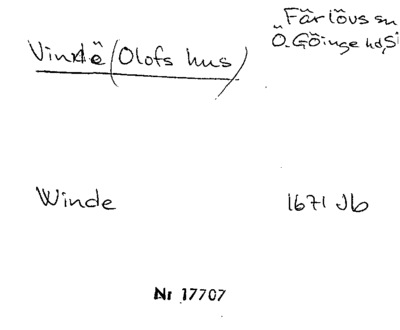 Färlövs sn
Vindë (Olofs hus)
Ö. Göinge hd, S
Winde 1671 Jb
Nr 17707